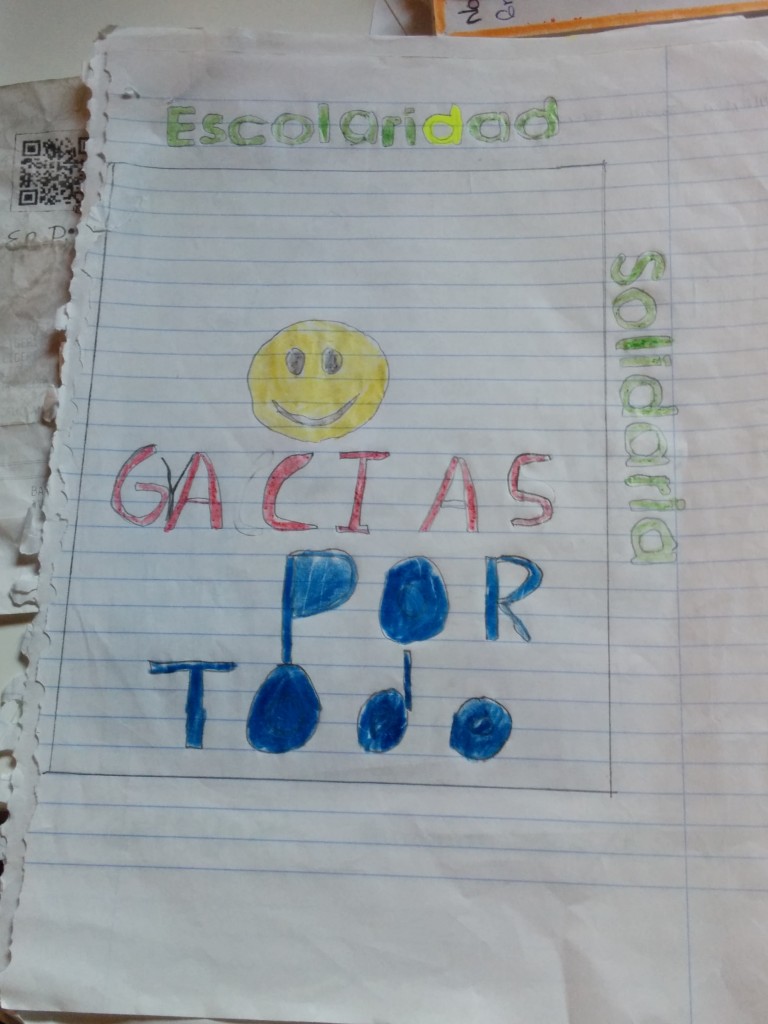 Escolaridad
Solidaria
GrACIAS
POR
TOdo